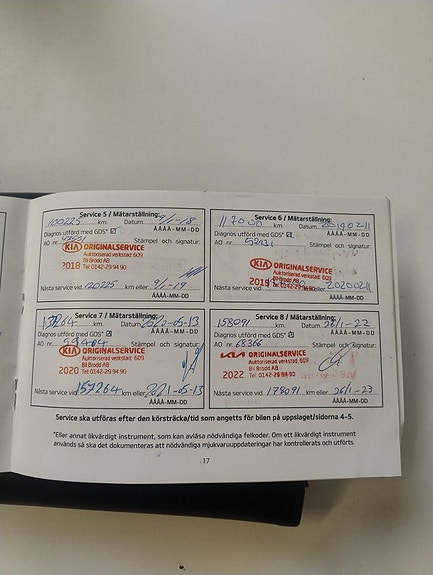 Service 5 / Mätarställning:
100225 km. Datum 9/1-18
Diagnos utförd med GDS* ☑ ÅÅÅÅ-MM-DD
AO nr. Stämpel och signatur:
KIA ORIGINALSERVICE
Auktoriserad verkstad: 609
Bil Brodd AB
2018 Tel: 0142-29 94 90
Nästa service vid 120225 km eller 9/1-19
ÅÅÅÅ-MM-DD
Service 6 / Mätarställning:
km. Datum
Diagnos utförd med GDS* ☑ ÅÅÅÅ-MM-DD
AO nr Stämpel och signatur:
KIA ORIGINALSERVICE
Auktoriserad verkstad: 609
Bil Brodd AB
2019
Nästa service vid km eller 20200211
ÅÅÅÅ-MM-DD
Service 7 / Mätarställning:
km. Datum 2020-05-13
Diagnos utförd med GDS* ☑ ÅÅÅÅ-MM-DD
AO nr. 59404 Stämpel och signatur:
KIA ORIGINALSERVICE
Auktoriserad verkstad: 609
Bil Brodd AB
2020 Tel: 0142-29 94 90
Nästa service vid 157264 km eller 2021-05-13
ÅÅÅÅ-MM-DD
Service 8 / Mätarställning:
158091 km. Datum 26/1-22
Diagnos utförd med GDS* ☑ ÅÅÅÅ-MM-DD
AO nr. 68366 Stämpel och signatur:
KIA ORIGINALSERVICE
Auktoriserad verkstad: 609
Bil Brodd AB
2022 Tel: 0142-29 94 90
Nästa service vid 178091 km eller 26/1-23
ÅÅÅÅ-MM-DD
Service ska utföras efter den körsträcka/tid som angetts för bilen på uppslaget/sidorna 4-5.
*Eller annat likvärdigt instrument, som kan avläsa nödvändiga felkoder. Om ett likvärdigt instrument
används så ska det dokumenteras att nödvändiga mjukvaruuppdateringar har kontrollerats och utförts.
17